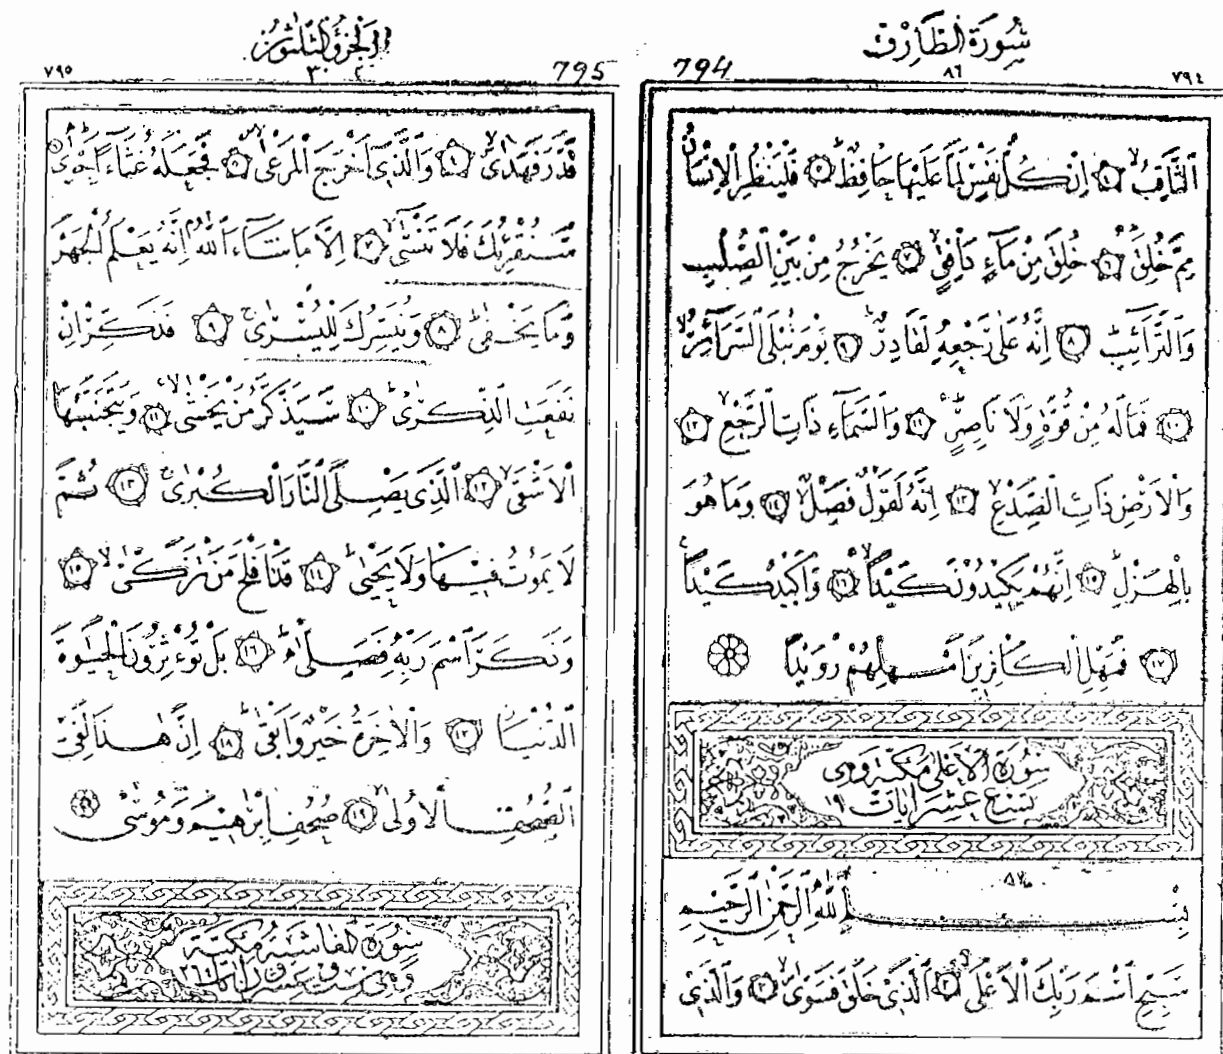 سُورَةُ الطَّارِقِ
٧٩٤
٨٦
794
الثَّاقِبُ ﴿٤﴾ اِنْ كُلُّ نَفْسٍ لَمَّا عَلَيْهَا حَافِظٌ ﴿٥﴾ فَلْيَنْظُرِ الْاِنْسَانُ
مِمَّ خُلِقَ ﴿٦﴾ خُلِقَ مِنْ مَآءٍ دَافِقٍ ﴿٧﴾ يَخْرُجُ مِنْ بَيْنِ الصُّلْبِ
وَالتَّرَآئِبِ ﴿٨﴾ اِنَّهُ عَلٰى رَجْعِهِ لَقَادِرٌ ﴿٩﴾ يَوْمَ تُبْلَى السَّرَآئِرُ
﴿١٠﴾ فَمَالَهُ مِنْ قُوَّةٍ وَلَا نَاصِرٍ ﴿١١﴾ وَالسَّمَآءِ ذَاتِ الرَّجْعِ ﴿١٢﴾
وَالْاَرْضِ ذَاتِ الصَّدْعِ ﴿١٣﴾ اِنَّهُ لَقَوْلٌ فَصْلٌ ﴿١٤﴾ وَمَا هُوَ
بِالْهَزْلِ ﴿١٥﴾ اِنَّهُمْ يَكِيدُونَ كَيْدًا ﴿١٦﴾ وَاَكِيدُ كَيْدًا
﴿١٧﴾ فَمَهِّلِ الْكَافِرِينَ اَمْهِلْهُمْ رُوَيْدًا
سُورَةُ الْاَعْلٰى مَكِّيَّةٌ وَهِىَ
تِسْعَ عَشَرَ اٰيَاتٍ ١٩
بِسْمِ اللّٰهِ الرَّحْمٰنِ الرَّحِيمِ
سَبِّحِ اسْمَ رَبِّكَ الْاَعْلٰى ﴿٢﴾ اَلَّذِى خَلَقَ فَسَوّٰى ﴿٣﴾ وَالَّذِى
اَلْجُزْؤُ الثَّلٰثُونَ
795
٣٠
٧٩٥
قَدَّرَ فَهَدٰى ﴿٤﴾ وَالَّذِى اَخْرَجَ الْمَرْعٰى ﴿٥﴾ فَجَعَلَهُ غُثَآءً اَحْوٰى ﴿٦﴾
سَنُقْرِئُكَ فَلَا تَنْسٰى ﴿٧﴾ اِلَّا مَا شَآءَ اللّٰهُ اِنَّهُ يَعْلَمُ الْجَهْرَ
وَمَا يَخْفٰى ﴿٨﴾ وَنُيَسِّرُكَ لِلْيُسْرٰى ﴿٩﴾ فَذَكِّرْ اِنْ
نَفَعَتِ الذِّكْرٰى ﴿١٠﴾ سَيَذَّكَّرُ مَنْ يَخْشٰى ﴿١١﴾ وَيَتَجَنَّبُهَا
الْاَشْقٰى ﴿١٢﴾ اَلَّذِى يَصْلَى النَّارَ الْكُبْرٰى ﴿١٣﴾ ثُمَّ
لَا يَمُوتُ فِيهَا وَلَا يَحْيٰى ﴿١٤﴾ قَدْ اَفْلَحَ مَنْ تَزَكّٰى ﴿١٥﴾
وَذَكَرَ اسْمَ رَبِّهِ فَصَلّٰى ﴿١٦﴾ بَلْ تُؤْثِرُونَ الْحَيٰوةَ
الدُّنْيَا ﴿١٧﴾ وَالْاٰخِرَةُ خَيْرٌ وَاَبْقٰى ﴿١٨﴾ اِنَّ هٰذَا لَفِى
الصُّحُفِ الْاُولٰى ﴿١٩﴾ صُحُفِ اِبْرٰهِيمَ وَمُوسٰى
سُورَةُ الْغَاشِيَةِ مَكِّيَّةٌ
وَهِىَ سِتٌّ وَعِشْرُونَ ٢٦